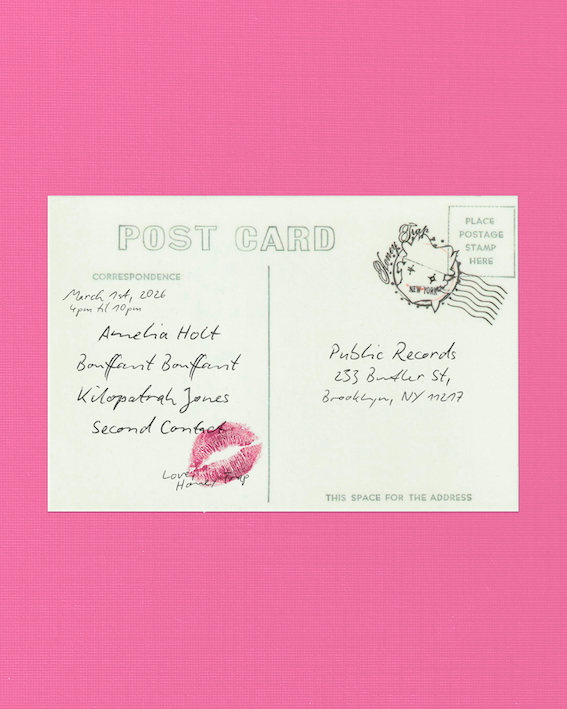 POST CARD
PLACE
POSTAGE
STAMP
HERE
Honey Trap
NEW YORK
CORRESPONDENCE
March 1st, 2026
4pm til 10pm
Amelia Holt
Bouffant Bouffant
Kilopatrah Jones
Second Contact
Love,
Honey Trap
Public Records
233 Butler St,
Brooklyn, NY 11217
THIS SPACE FOR THE ADDRESS